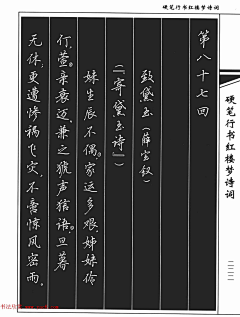 硬笔行书红楼梦诗词
第八十七回
致黛玉(薛宝钗)
(『寄黛玉诗』)
妹生辰不偶。家运多艰，姊妹伶
仃，萱亲衰迈。兼之猇声狺语。旦暮
无休；更遭惨祸飞灾，不啻惊风密雨，
硬笔行书红楼梦诗词
二二二